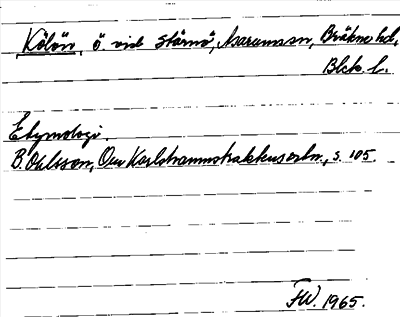 Kölön, ö. vid Stärnö, Asarumssn, Bräkne hd,
Blek. l.
Etymologi
B. Ohlsson, Om Karlshamnstraktens ortn., s. 105.
FW. 1965.